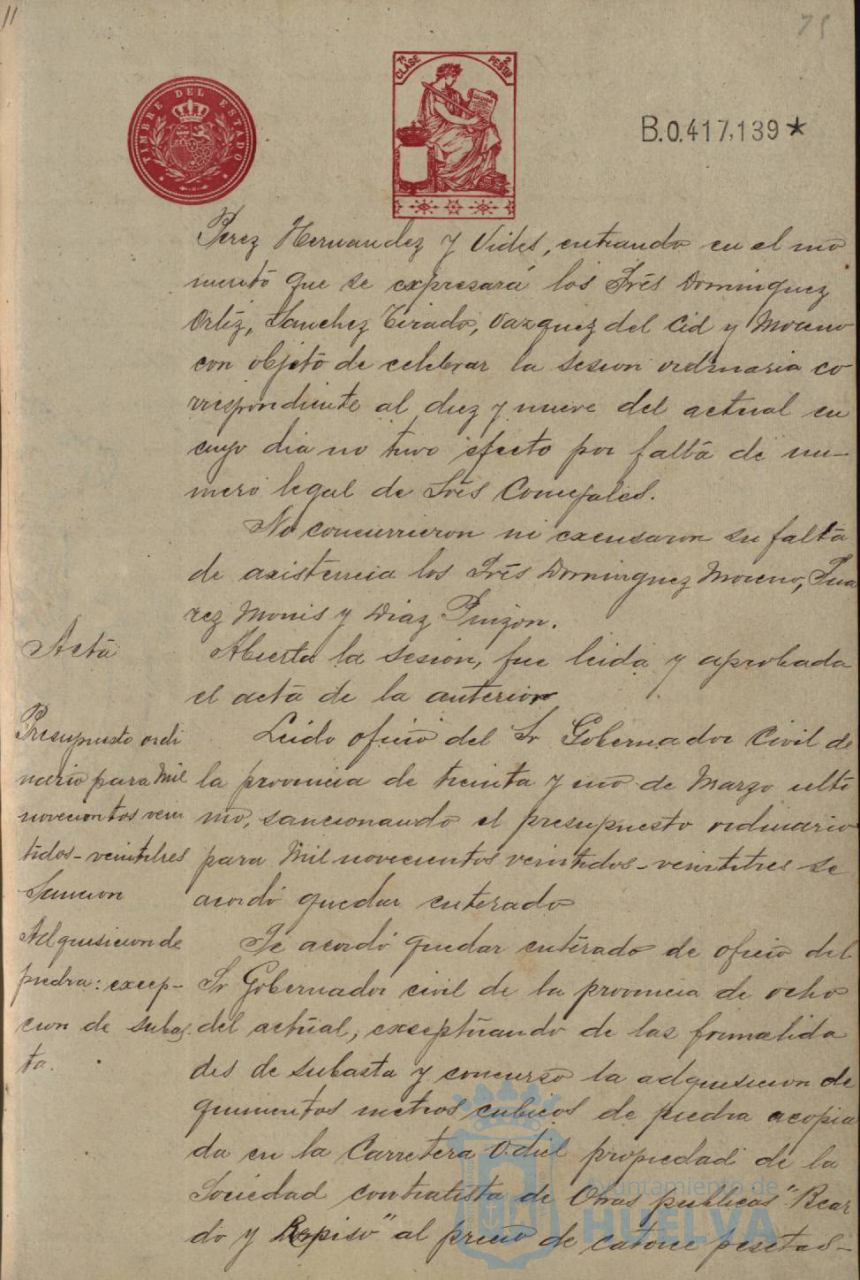 11
75
TIMBRE DEL ESTADO
7ª CLASE
2 PESTAS
B.0.417,139★
Perez Hernandez y Vides, entrando en el mo
mento que se expresará los Srés Dominguez
Ortiz, Sanchez Tirado, Vazquez del Cid y Moreno
con objeto de celebrar la sesion ordinaria co
rrespondiente al diez y nueve del actual en
cuyo dia no tuvo efecto por falta de nu-
mero legal de Srés Concejales.
No concurrieron ni excusaron su falta
de axistencia los Srés Dominguez Moreno, Sua
rez Monis y Diaz Pinzon.
Acta
Abierta la sesion, fue leida y aprobada
el acta de la anterior
Presupuesto ordi
nario para Mil
novecientos vein
tidos-veintitres
Sancion
Leido oficio del Sr Gobernador Civil de
la provincia de treinta y uno de Marzo ulti
mo, sancionando el presupuesto ordinario
para Mil novecientos veintidos-veintitres se
acordó quedar enterado
Adquisicion de
piedra: excep-
cion de subas
ta.
Se acordó quedar enterado de oficio del
Sr Gobernador civil de la provincia de ocho
del actual, exceptuando de las formalida
des de subasta y concurso la adquisicion de
quinientos metros cubicos de piedra acopia
da en la Carretera Odiel propiedad de la
Sociedad contratista de Obras publicas "Bear
do y Repiso" al precio de catorce pesetas-
Ayuntamiento de
HUELVA